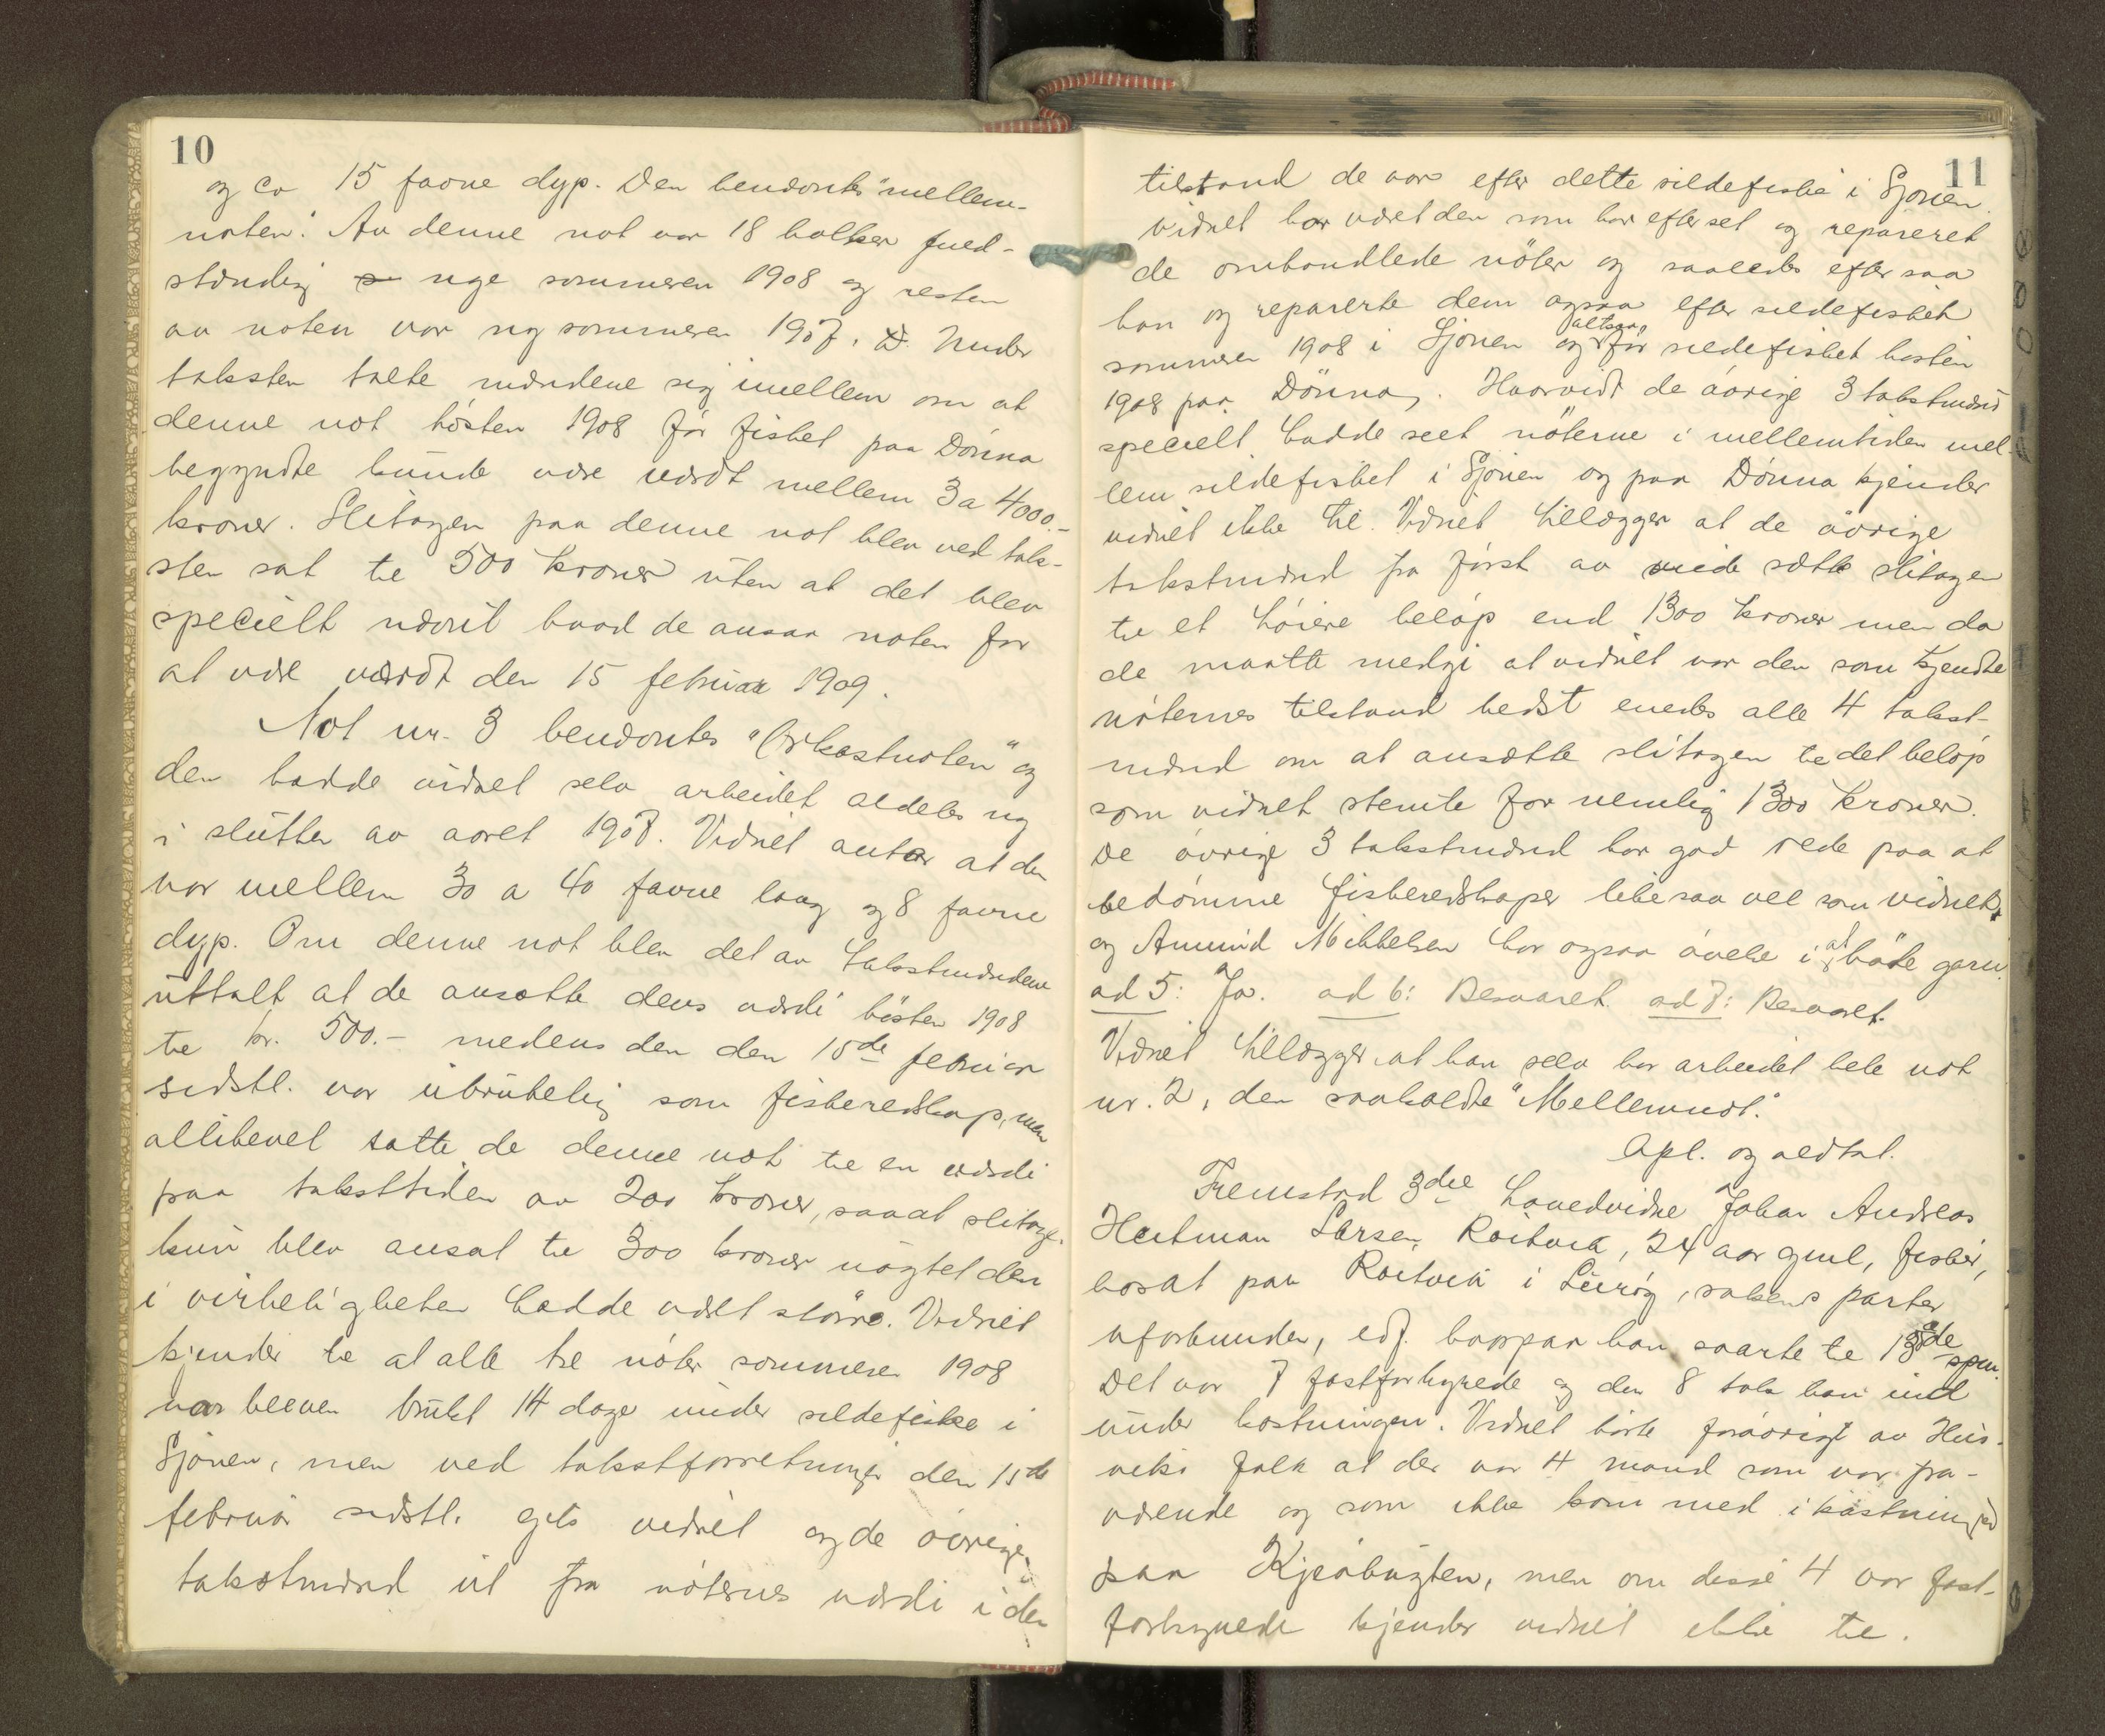 10
og ca 15 favne dyp. Den benævntes "mellem-
noten". Av denne not var 18 balker fuld-
stændig nye sommeren 1908 og resten
av noten var ny sommeren 1907. Under
taksten talte mændene sig imellem om at
denne not høsten 1908 før fisket paa Dønna
begyndte kunde være værdt mellem 3 a 4000.-
kroner. Slitagen paa denne not blev ved tak-
sten sat til 500 kroner uten at det blev
specielt nævnt hvad de ansaa noten for
at være værdt den 15 februar 1909.
Not nr. 3 benævntes "Orkastnoten" og
den hadde vidnet selv arbeidet aldeles ny
i slutten av aaret 1907. Vidnet antar at den
var mellem 30 a 40 favne lang og 8 favne
dyp. Om denne not blev det av takstmændene
uttalt at de ansatte dens værdi høsten 1908
til kr. 500.- medens den den 15de februar
sidstl. var ubrukelig som fiskeredskap, men
allikevel satte de denne not til en værdi
paa taksttiden av 200 kroner, saaat slitagen
kun blev ansat til 300 kroner uagtet den
i virkeligheten hadde været større. Vidnet
kjender til at alle tre nøter sommeren 1908
var bleven brukt 14 dage under sildefiske i
Sjonen, men ved takstforretningen den 15de
februar sidstl. gik vidnet og de øvrige
takstmænd ut fra nøternes værdi i den
11
tilstand de var efter dette sildefiske i Sjonen.
Vidnet har været den som har efterset og repareret
de omhandlede nøter og saaledes efter saa
han og reparerte dem ogsaa efter sildefisket
sommeren 1908 i Sjonen og altsaa før sildefisket høsten
1908 paa Dønna. Hvorvidt de øvrige 3 takstmænd
specielt hadde seet nøterne i mellemtiden mel-
lem sildefisket i Sjonen og paa Dønna kjender
vidnet ikke til. Vidnet tillægger at de øvrige
takstmænd fra først av vilde sætte slitagen
til et høiere beløp end 1300 kroner men da
de maatte medgi at vidnet var den som kjendte
nøternes tilstand bedst enedes alle 4 takst-
mænd om at ansætte slitagen til det beløp
som vidnet stemte for nemlig 1300 kroner.
De øvrige 3 takstmænd har god rede paa at
bedømme fiskeredskaper likesaa vel som vidnet
og Amund Mikkelsen har ogsaa øvelse i at bøte garn.
ad 5: Ja. ad 6: Besvaret. ad 7: Besvaret.
Vidnet tillægger at han selv har arbeidet hele not
nr. 2, den saakaldte "Mellemnot".
Opl. og vedtat.
Fremstod 3die hovedvidne Johan Andreas
Hertman Larsen, 24 aar gml, fisker,
bosat paa i Lurøy, sakens parter
uforbunden, edf. hvorpaa han svarte til 13de spm.
Det var 7 fastforhyrede og den 8 tok han ind
under kastningen. Vidnet hørte forøvrigt av Hus-
viks folk at der var 4 mand som var fra-
værende og som ikke kom med i kastningen
paa Kjeøbugten, men om disse 4 var fast-
forhyrede kjender vidnet ikke til.